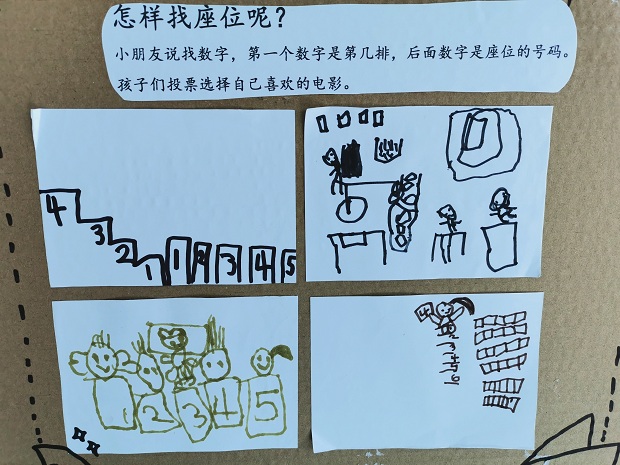 怎样找座位呢？
小朋友说找数字，第一个数字是第几排，后面数字是座位的号码。
孩子们投票选择自己喜欢的电影。
4
3
2
1 1 2 3 4 5
1 2 3 4 5
4